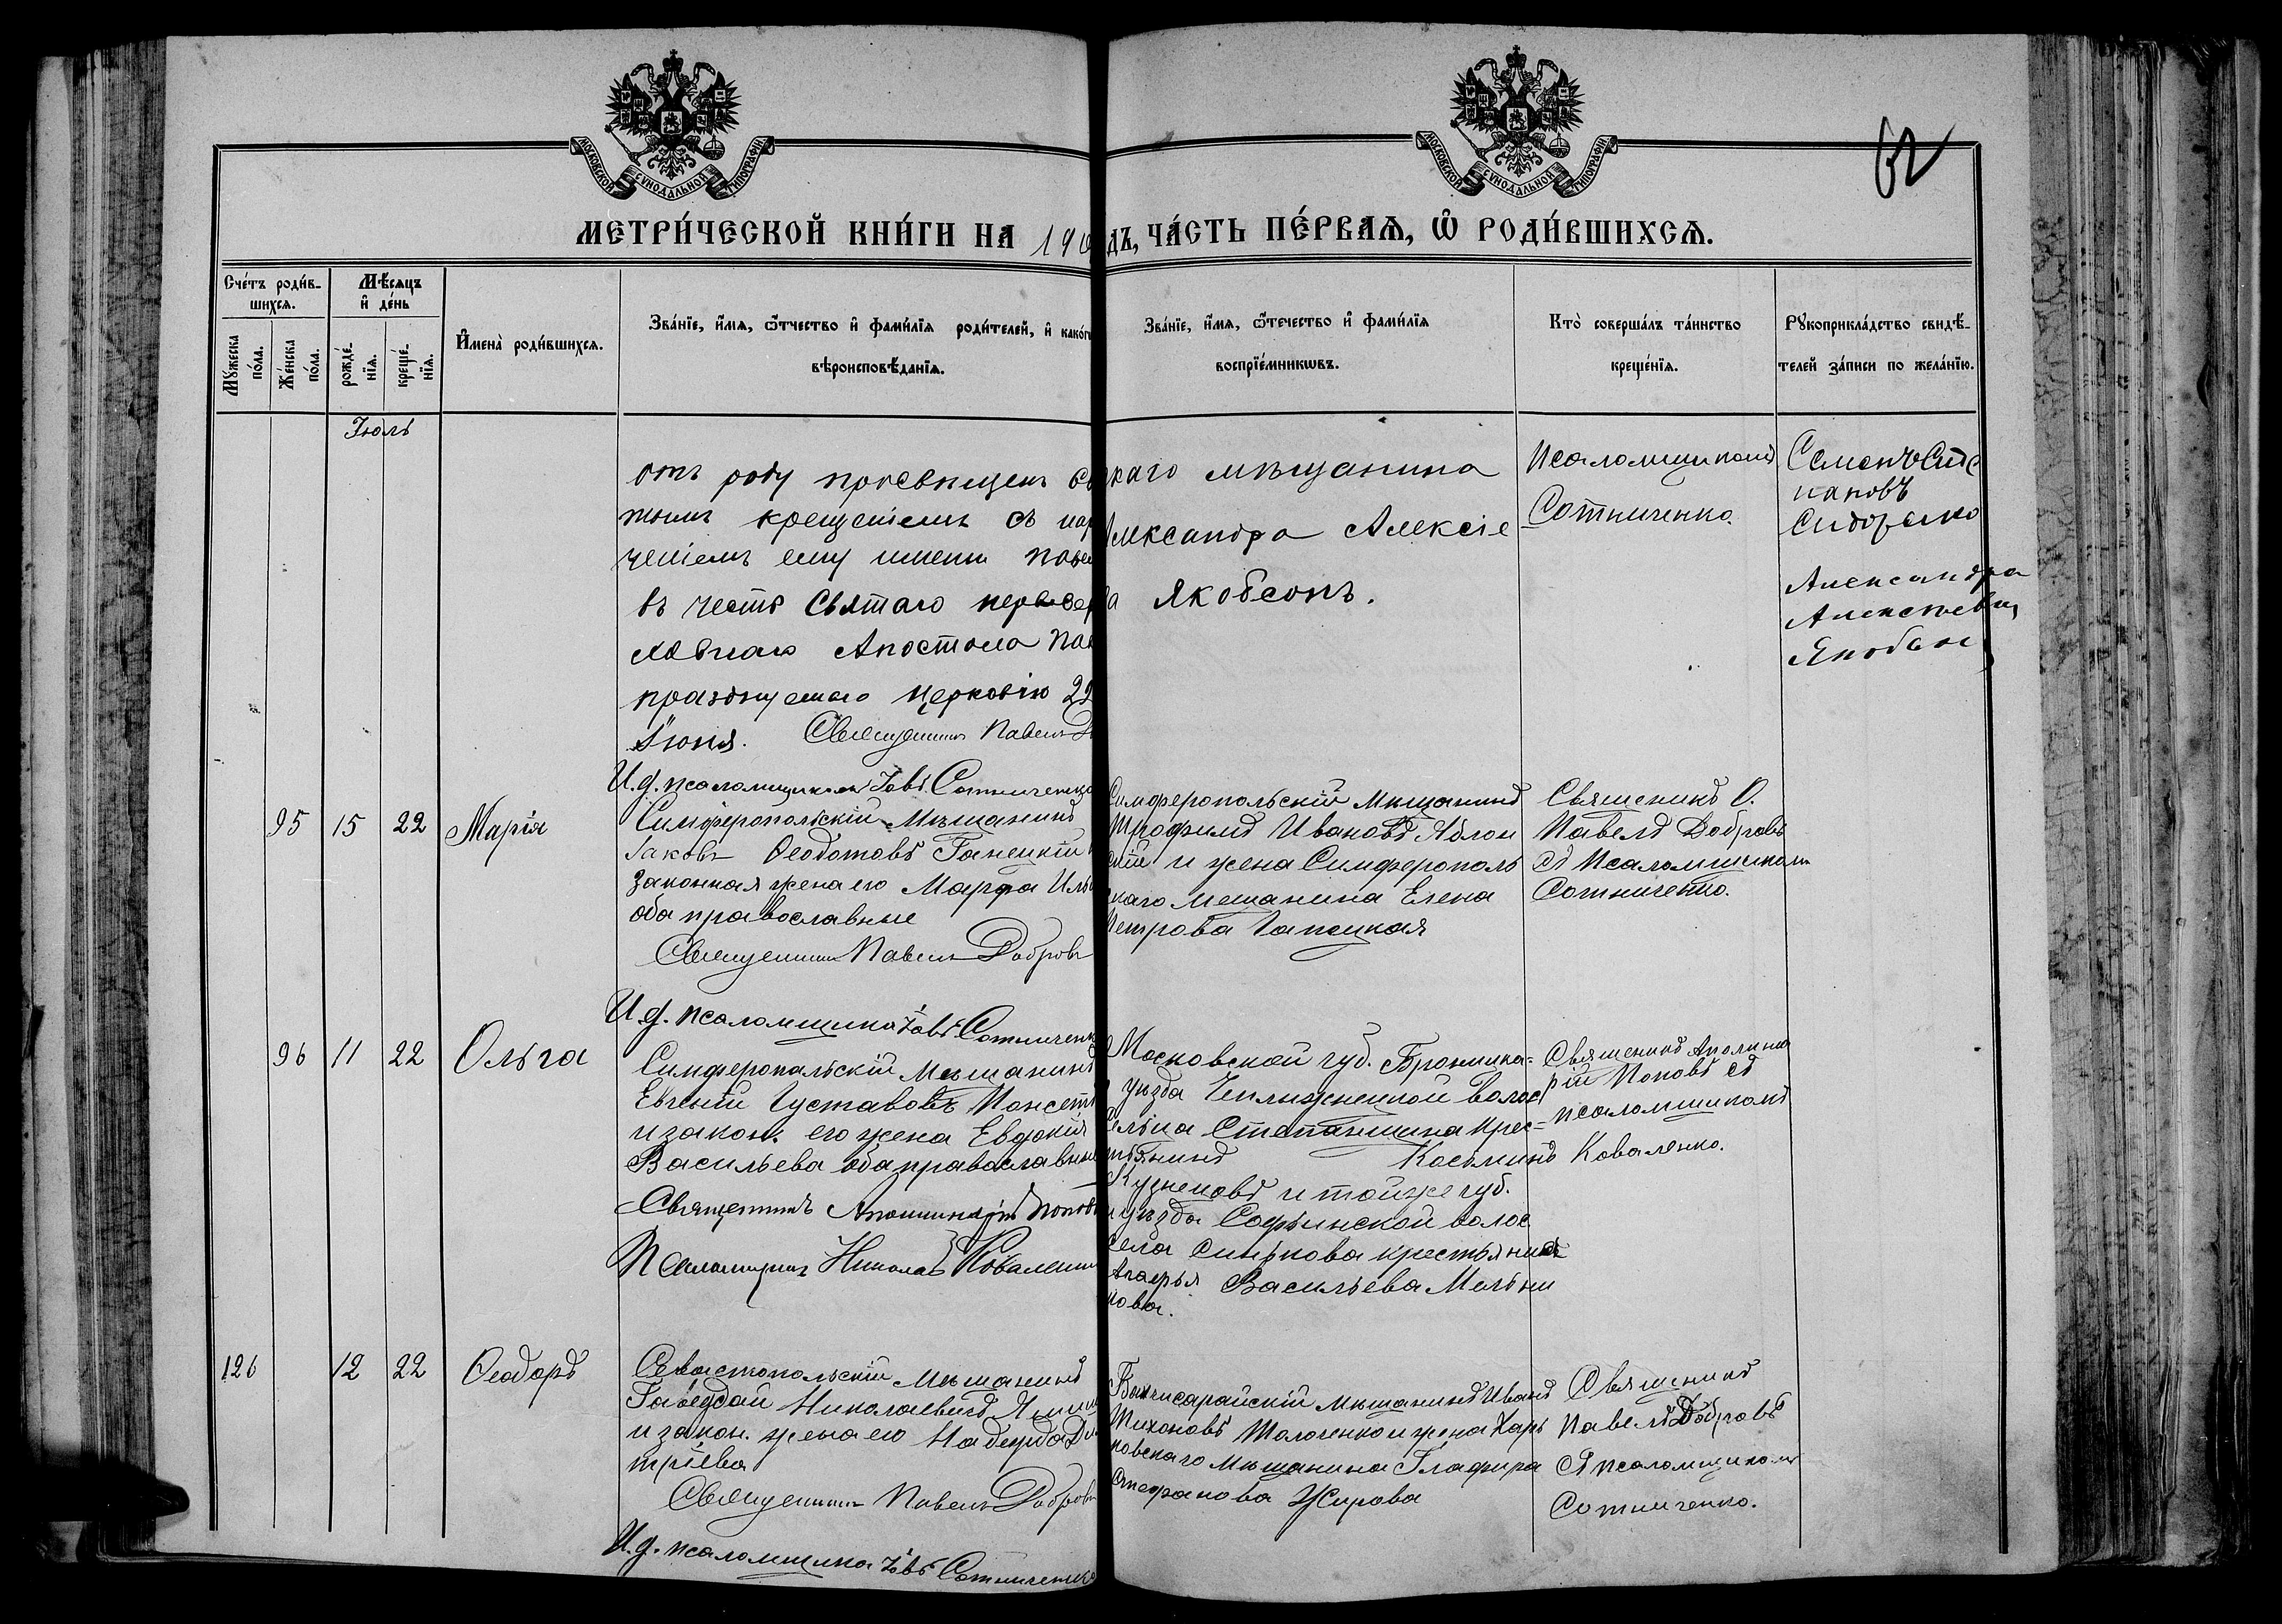 МОСКОВСКОЙ СУНОДАЛЬНОЙ ТИПОГРАФІИ
МОСКОВСКОЙ СУНОДАЛЬНОЙ ТИПОГРАФІИ
62
МЕТРИ́ЧЕСКОЙ КНИ́ГИ НА 190
дъ, ЧА́СТЬ ПЕ́РВАѦ, Ѡ҆ РОДИ́ВШИХСѦ.
Сче́тъ роди́в-
шихсѧ.
Мѣ́сяцъ
и҆ де́нь
Мꙋ́жеска
по́ла.
Же́нска
по́ла.
рожде́-
нїѧ.
креще́-
нїѧ.
И҆мена̀ роди́вшихсѧ.
Зва́нїе, и҆́мѧ, ѻ҆́тчество и҆ фами́лїѧ роди́телей, и҆ како́г
вѣроисповѣ́данїѧ.
Зва́нїе, и҆́мѧ, ѻ҆́течество и҆ фами́лїѧ
воспрїе́мникѡвъ.
Кто̀ соверша́лъ та́инство
креще́нїѧ.
Рꙋкоприкла́дство свидѣ́-
телей за́писи по жела́нїю.
Іюль
отъ роду просвѣщенъ св
тымъ крещеніемъ съ нар
ченіемъ ему имени Павел
въ честь Святаго первовер
ховнаго Апостола Пав
празднуемаго Церковію 29
Іюня. Священникъ Павелъ Д
И.д. псаломщика Іовъ Сотниченко
каго мѣщанина
Александра Алексіе
ва Якобсонъ.
Псаломщикомъ
Сотниченко.
Семенъ Сте
пановъ
Сидоренко
Александра
Алексѣевна
Якобсон
95 15 22 Марія
Симферопольскій Мѣщанинъ
Іаковъ Ѳеодотовъ Ганецкій
законная жена его Марѳа Иль
оба православные
Священникъ Павелъ Добровъ
И.д. псаломщика Іовъ Сотниченко
Симферопольскій Мѣщанинъ
Трофимъ Ивановъ Яблон
скій и жена Симферополь
скаго мещанина Елена
Петрова Ганецкая
Свяшеникъ О.
Павелъ Добровъ
съ Псаломщикомъ
Сотниченко.
96 11 22 Ольга
Симферопальскій Мѣщанинъ
Евгеній Густавовъ
и закон. его жена Евдокія
Васильева оба православные
Священникъ Аполлинарій Поповъ
Псаломщикъ Николай Коваленко
Московской губ. Бронниц=
уѣзда волос
сельца Степаншина крес=
тьянинъ Косьминъ
Кузнецовъ и тойже губ.
и уѣзда Софьинской волос
села крестьянка
Агафья Васильева Мельни
кова.
Свяшеникъ Аполина
рій Поповъ съ
псаломщикомъ
Коваленко.
126 12 22 Ѳеодоръ
Севастопольскій Мѣщанинъ
Николаевичъ
и закон. жена его Надежда Дми
тріева
Священникъ Павелъ Добровъ
И.д. псаломщика Іовъ Сотниченко
Бахчисарайскій Мѣщанинъ Иванъ
Тихоновъ Толоченко и жена Харь
ковскаго Мѣщанина Глафира
Стефанова Жирова
Свяшеникъ
Павелъ Добровъ
съ псаломщикомъ
Сотниченко.